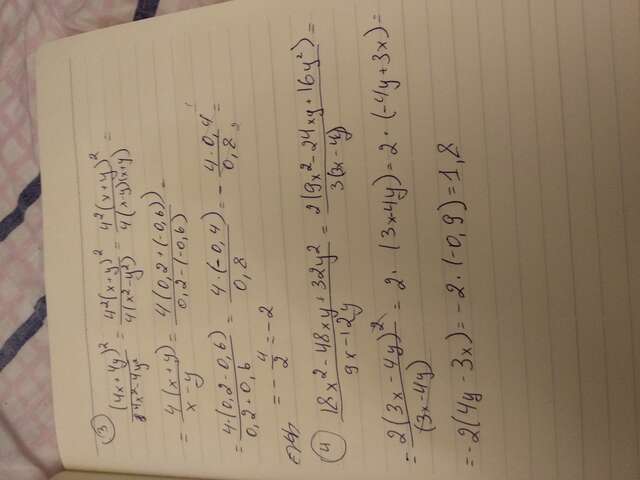 3
(4x+4y)²/4x²-4y² = 4²(x+y)²/4(x²-y²) = 4²(x+y)²/4(x-y)(x+y) =
= 4(x+y)/x-y = 4(0,2+(-0,6))/0,2-(-0,6) =
= 4·(0,2-0,6)/0,2+0,6 = 4·(-0,4)/0,8 = - 4·0,4/0,8 =
= - 4/2 = -2
4
18x²-48xy+32y²/9x-12y = 2(9x²-24xy+16y²)/3(3x-4y) =
= 2(3x-4y)²/(3x-4y) = 2·(3x-4y) = 2·(-4y+3x) =
= -2(4y-3x) = -2·(-0,9) = 1,8